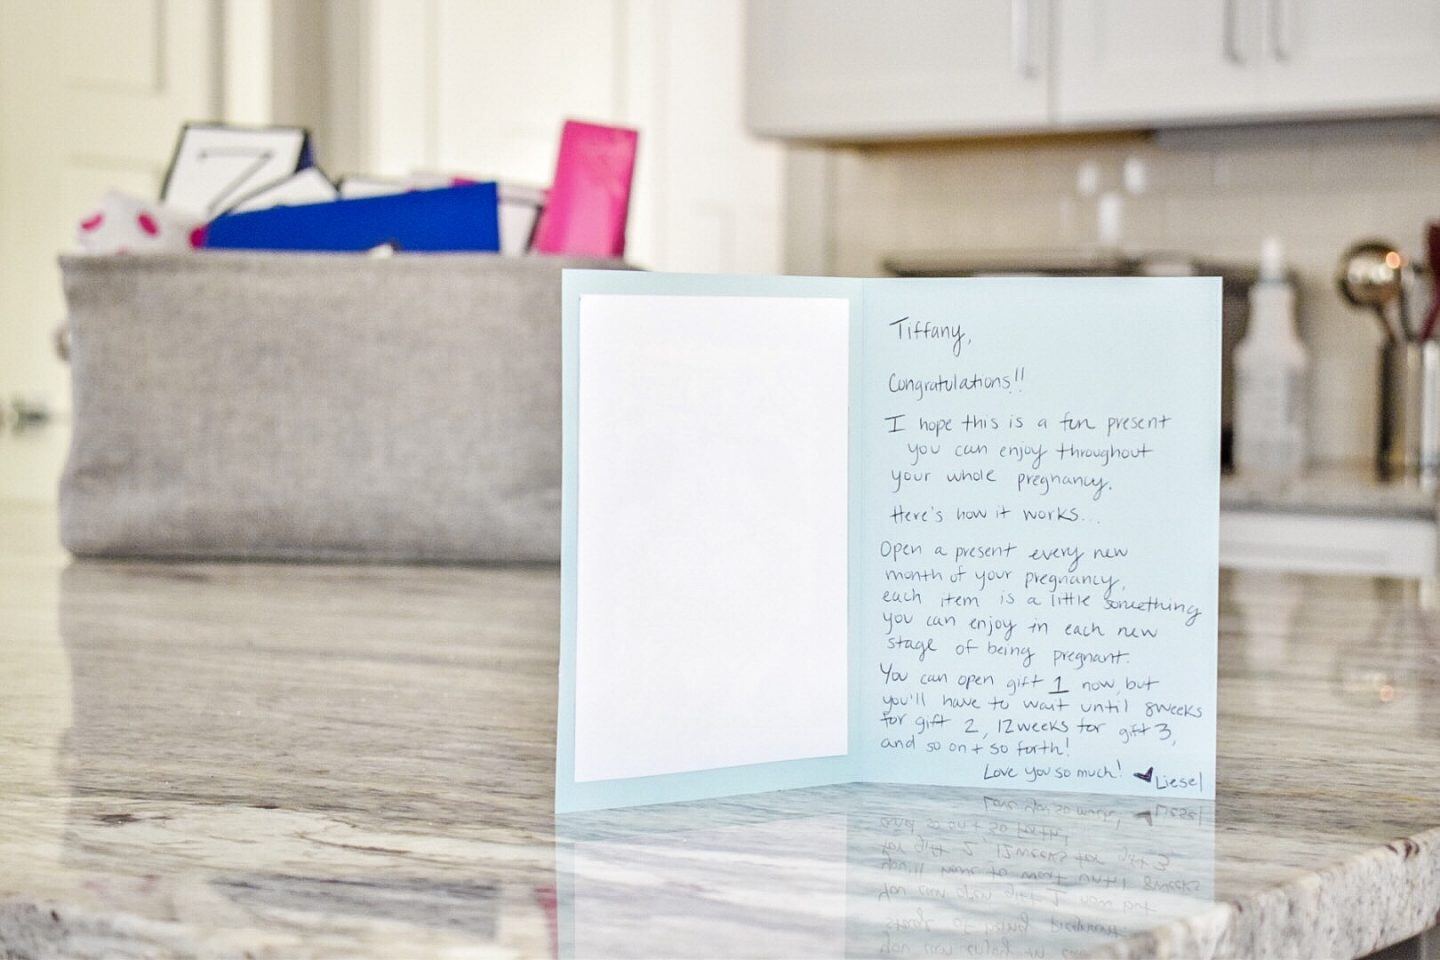 7
Tiffany,
Congratulations!!
I hope this is a fun present
you can enjoy throughout
your whole pregnancy.
Here's how it works...
Open a present every new
month of your pregnancy,
each item is a little something
you can enjoy in each new
stage of being pregnant.
You can open gift 1 now, but
you'll have to wait until 8weeks
for gift 2, 12weeks for gift 3,
and so on + so forth!
Love you so much! ♥Liesel